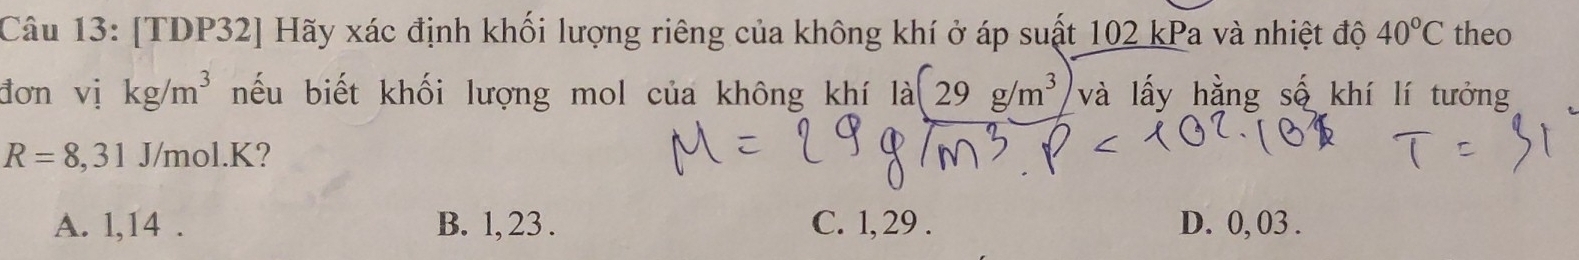 Câu 13: [TDP32] Hãy xác định khối lượng riêng của không khí ở áp suất 102 kPa và nhiệt độ 40°C theo
đơn vị kg/m³ nếu biết khối lượng mol của không khí là 29 g/m³ và lấy hằng số khí lí tưởng
R = 8,31 J/mol.K?
M = 29 g/m³. P < 102.10³ T = 31
A. 1,14 .
B. 1,23.
C. 1,29.
D. 0,03.